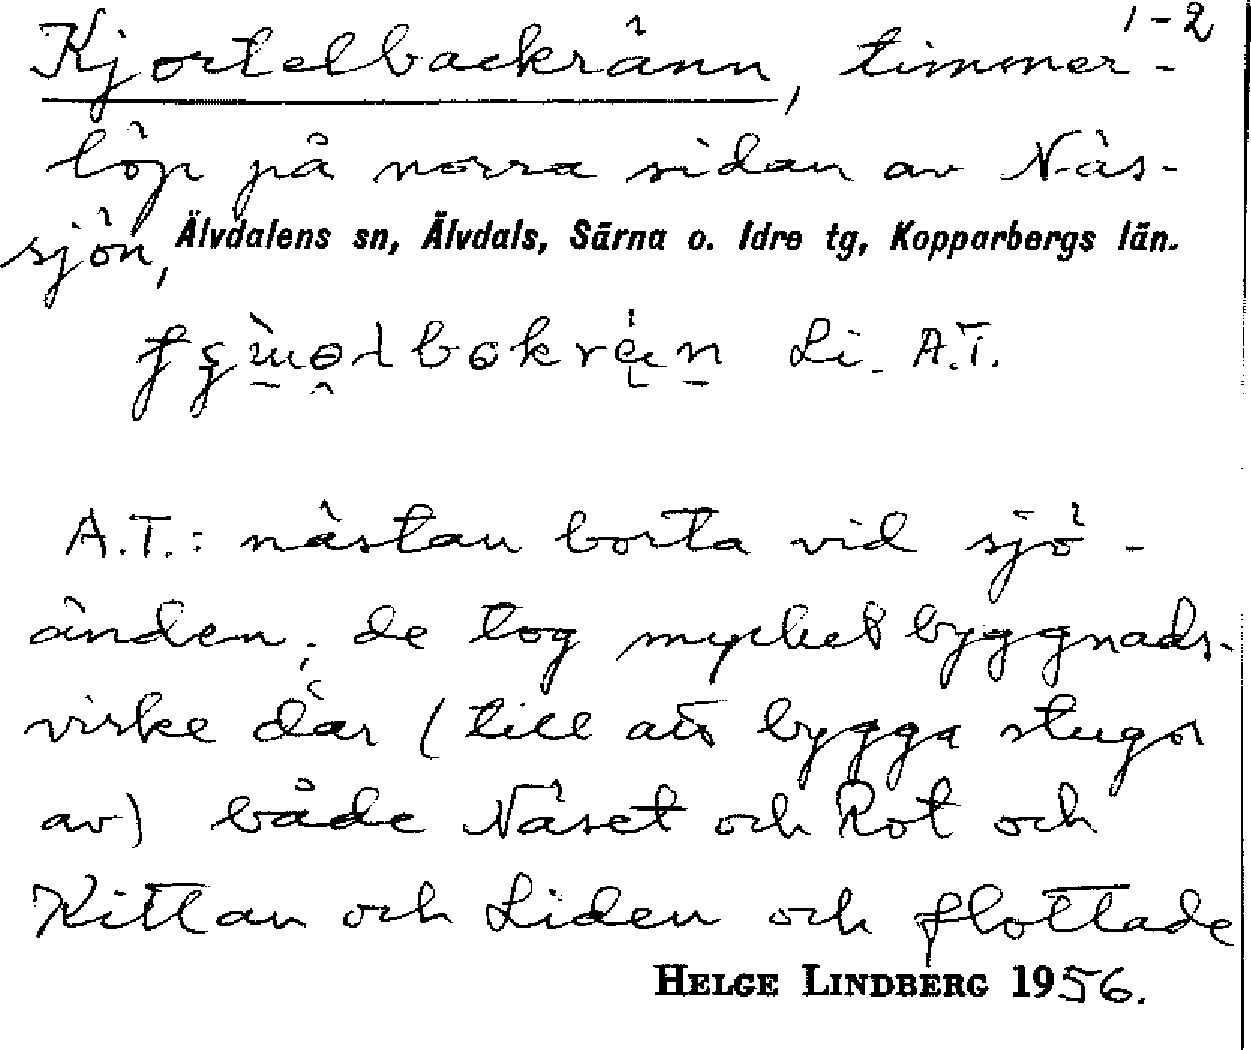 1-2
Kjortelbackränn, timmer-
löp på norra sidan av Näs-
sjön, Älvdalens sn, Älvdals, Särna o. Idre tg, Kopparbergs län.
Li. A.T.
A.T.: nästan borta vid sjö-
änden; de tog mycket byggnads-
virke där (till att bygga stugor
av) både Näset och Rot och
Kittan och Liden och flottade
HELGE LINDBERG 1956.